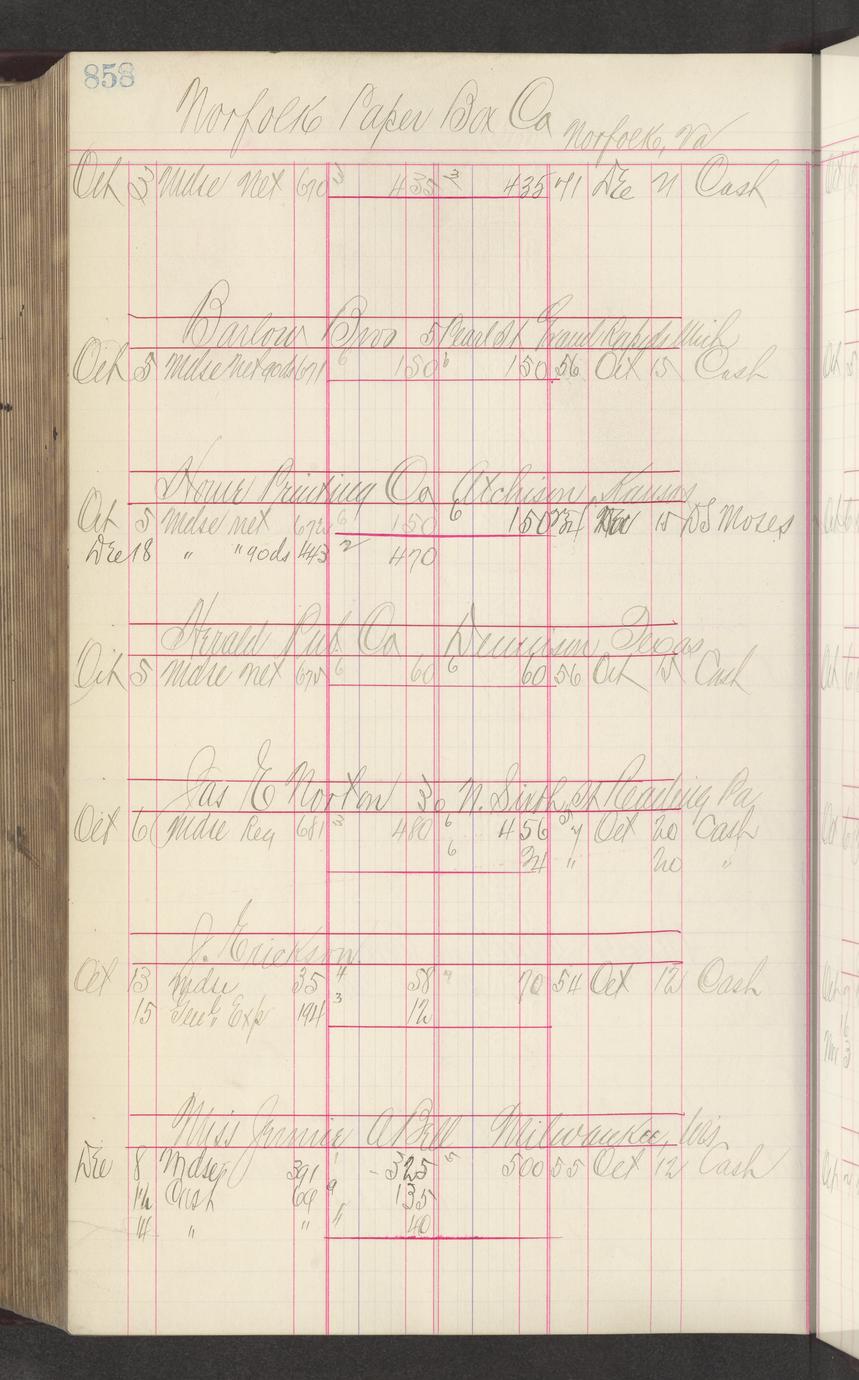 858
Norfolk Paper Box Co Norfolk, Va
Oct 3 Mdse Net 670 3 435 3 435 71 Dec 21 Cash
Barlow Bros 5 Pearl St Grand Rapids Mich
Oct 5 Mdse Net gods 671 6 150 6 150 56 Oct 15 Cash
Home Printing Co Atchison, Kansas
Oct 5 Mdse net 672 6 150 6 150 15 DS Moses
Dec 18 " " gods 443 2 470
Herald Pub Co Dennison Texas
Oct 5 Mdse net 675 6 60 6 60 56 Oct 15 Cash
Jas E Norton 30 N. Sixth St Reading Pa
Oct 6 Mdse Reg 681 3 480 6 456 57 Oct 20 Cash
6 24 " 20 "
J. Erickson
Oct 13 Mdse 35 4 58 9 70 54 Oct 12 Cash
15 Genl Exp 194 3 12
Miss Jennie A Bell Milwaukee, Wis
Dec 8 Mdse 391 1 325 5 500 55 Oct 12 Cash
12 Cash 69 9 135
14 " " " 40